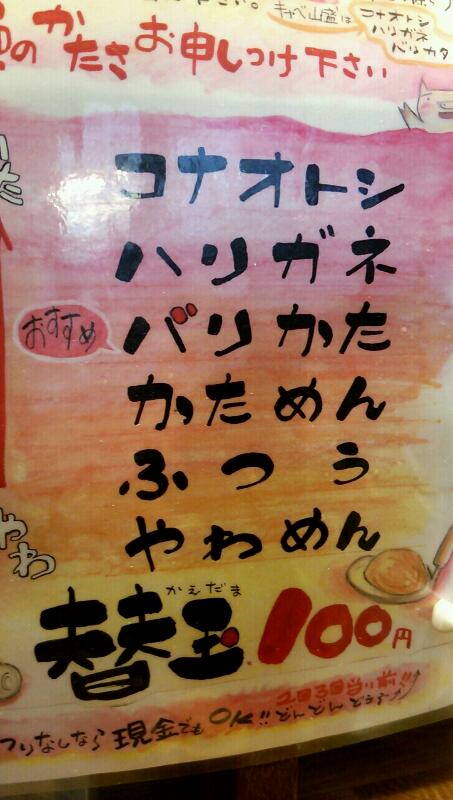 キャベ山盛は
コナオトシ
ハリガネ
バリカタ
のかたさお申しつけ下さい
コナオトシ
ハリガネ
おすすめ
バリかた
かためん
ふつう
やわめん
やわ
かえだま
替玉100円
2回3回当り前!!
つりなしなら現金でもOK!!どんどんどうぞ